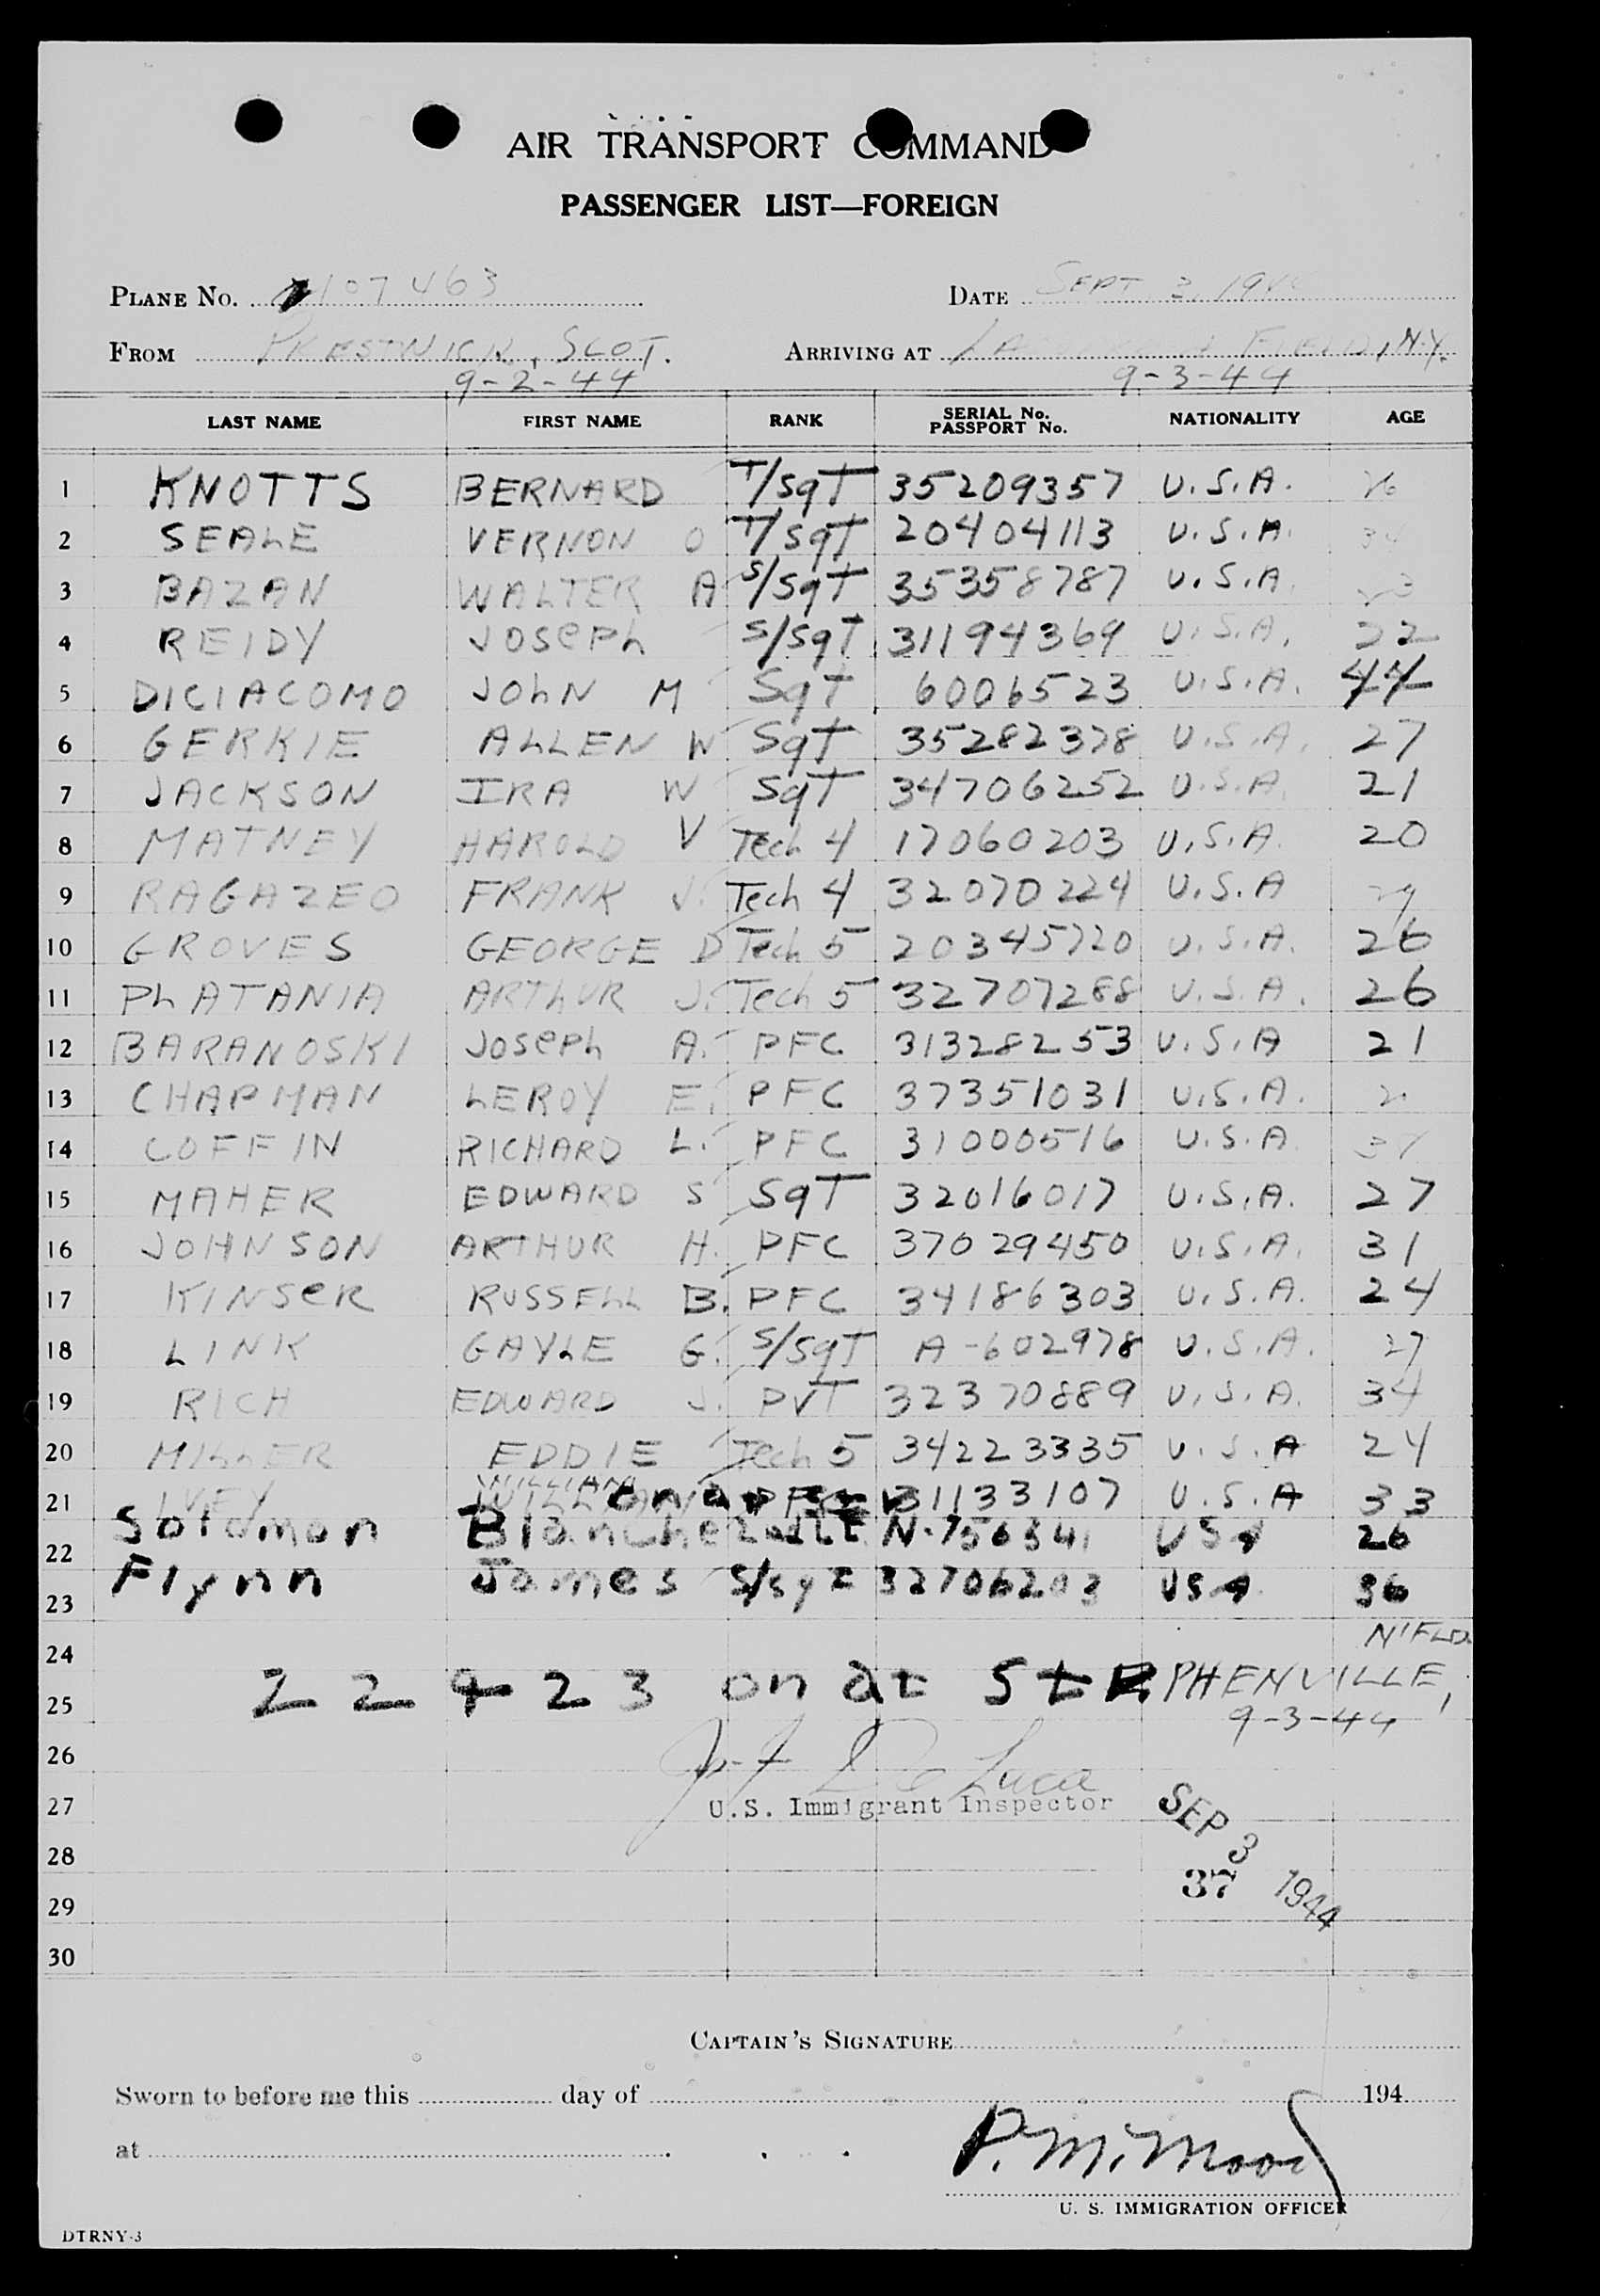 AIR TRANSPORT COMMAND
PASSENGER LIST—FOREIGN
PLANE NO. 107463 DATE SEPT 3, 194
FROM PRESTWICK, SCOT. ARRIVING AT FIELD, N.Y.
9-2-44 9-3-44
LAST NAME FIRST NAME RANK SERIAL No. PASSPORT No. NATIONALITY AGE
1 KNOTTS BERNARD T/SgT 35209357 U.S.A. 26
2 SEALE VERNON O T/SgT 20404113 U.S.A.
3 BAZAN WALTER A S/SgT 35358787 U.S.A.
4 REIDY JOSEPh S/SgT 31194369 U.S.A. 22
5 DICIACOMO JOhN M SgT 6006523 U.S.A. 44
6 GERKIE ALLEN W SgT 35282378 U.S.A. 27
7 JACKSON IRA W SgT 34706252 U.S.A. 21
8 MATNEY HAROLD V Tech 4 17060203 U.S.A. 20
9 RAGAZEO FRANK J. Tech 4 32070224 U.S.A 29
10 GROVES GEORGE D Tech 5 20345720 U.S.A. 26
11 PLATANIA ARThUR J. Tech 5 32707288 U.S.A. 26
12 BARANOSKI JOSePh A. PFC 31328253 U.S.A 21
13 CHAPMAN LEROY E. PFC 37351031 U.S.A.
14 COFFIN RICHARD L. PFC 31000516 U.S.A
15 MAHER EDWARD S SgT 32016017 U.S.A. 27
16 JOHNSON ARTHUR H. PFC 37029450 U.S.A. 31
17 KINSeR RUSSELL B. PFC 34186303 U.S.A. 24
18 LINK GAYLE G. S/SgT A-602978 U.S.A. 27
19 RICH EDWARD J. PVT 32370889 U.S.A. 34
20 MILLER EDDIE Tech 5 34223335 U.S.A 24
21 IVEY WILLIAM PFC 31133107 U.S.A 33
22 Solomon Blanche 2d Lt N-756341 USA 26
23 Flynn James S/sgt 32706203 USA 36
24 N'FLD.
25 22 + 23 on at STEPHENVILLE,
9-3-44
26 J. J. De Luca
27 U.S. Immigrant Inspector SEP 3 1944
28
37
29
30
CAPTAIN'S SIGNATURE
Sworn to before me this day of 194
at P. M. Mood
U. S. IMMIGRATION OFFICER
DTRNY-3